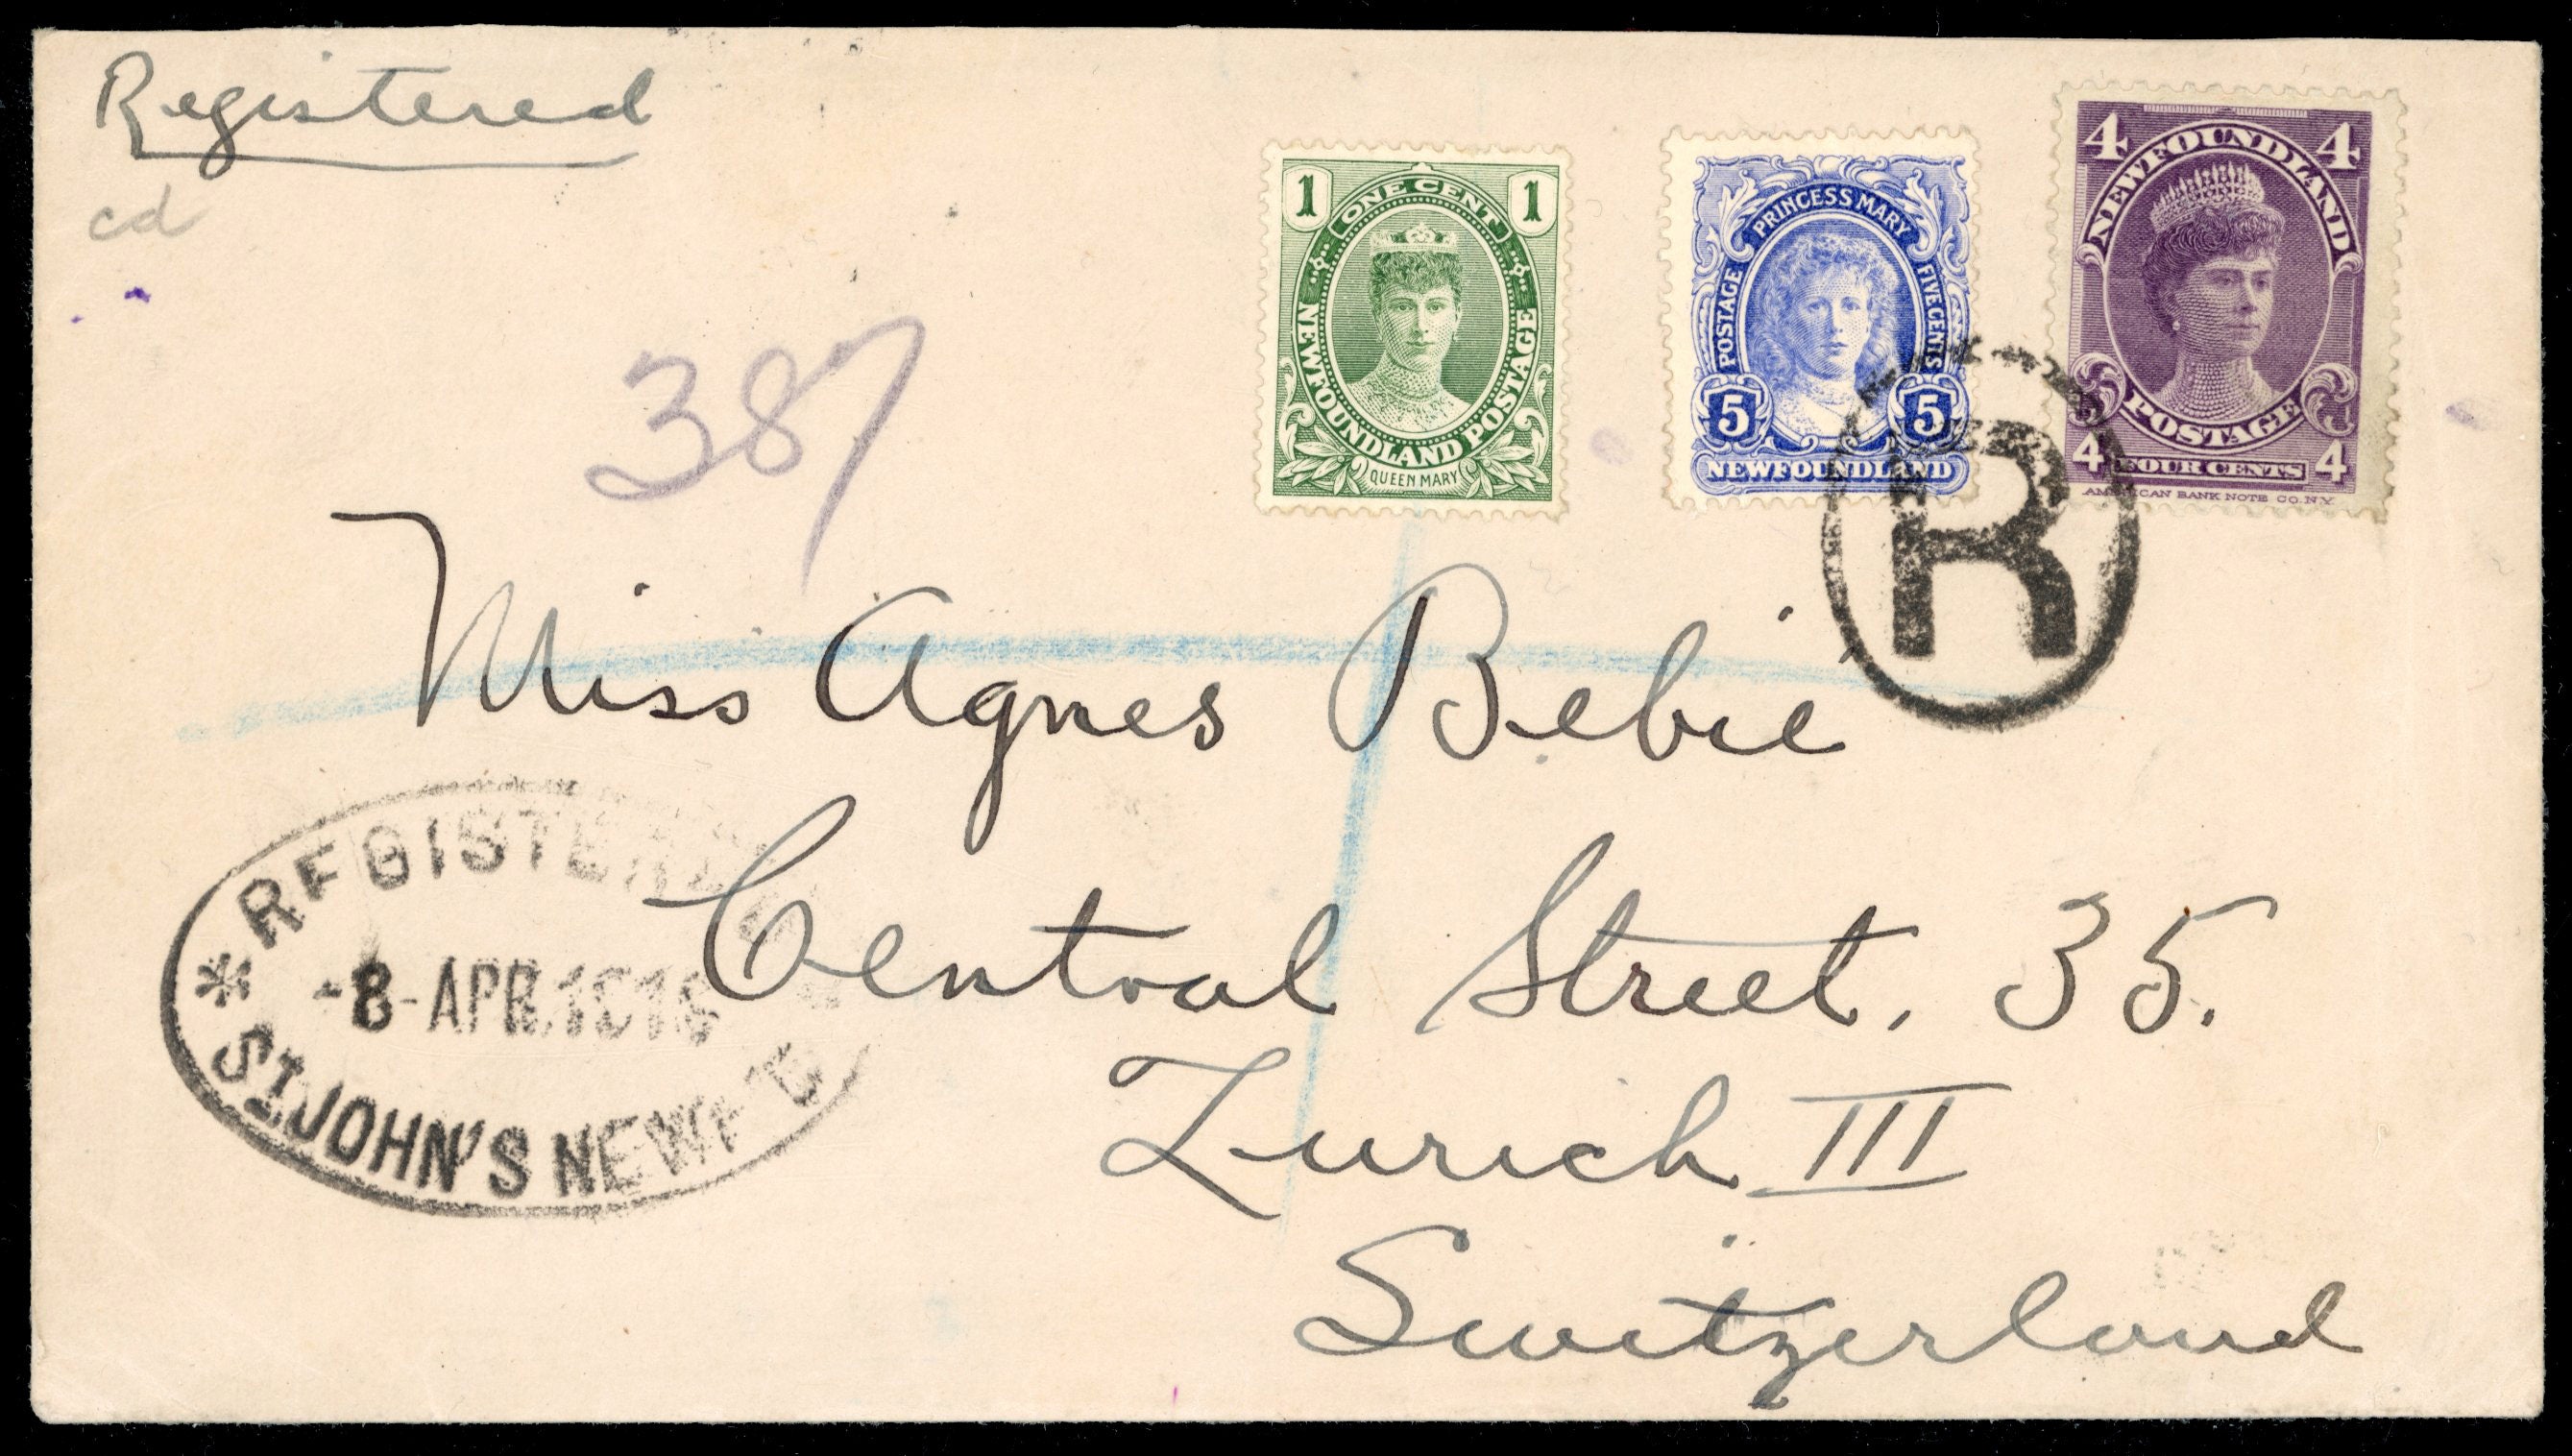 Registered
cd
387
1 ONE CENT 1
NEWFOUNDLAND POSTAGE
QUEEN MARY
PRINCESS MARY
POSTAGE FIVE CENTS
5 5
NEWFOUNDLAND
4 4
NEWFOUNDLAND
POSTAGE
4 FOUR CENTS 4
AMERICAN BANK NOTE CO. N.Y.
R
Miss Agnes Bebié
Central Street, 35.
Zurich III
Switzerland
* REGISTERED
-8-APR.1916
ST. JOHN'S NEWF'D